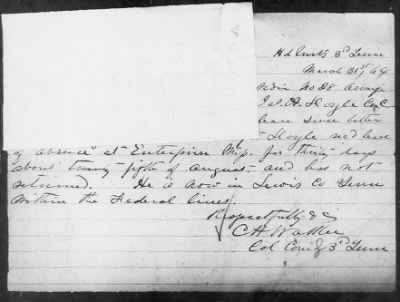 Hd Qurts 3d Tenn
March 31st /64
Order No 28 Army
Jas. H. Hoyle Co C
leave since letter
Hoyle rec'd leave
of absence at Enterprise Miss. for thirty days
about twenty fifth of August and has not
returned. He is now in Lewis Co Tenn
within the Federal lines.
Respectfully &c
C H Walker
Col Com'g 3d Tenn